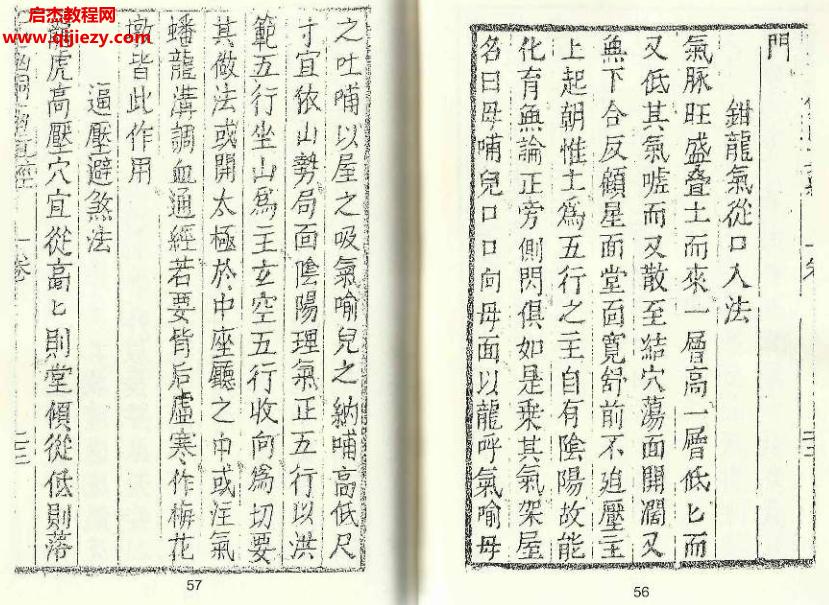 启杰教程网
www.qijiezy.com
門
鉗龍氣從口入法
氣脉旺盛叠土而來一層高一層低匕而
又低其氣嘘而又散至結穴蕩面開濶又
無下合反顧星面堂面寬舒前不迫壓主
上起朝惟土為五行之主自有陰陽故能
化育無論正旁側閃俱如是乘其氣架屋
名曰母哺兒口口向母面以龍呼氣喻母
56
之吐哺以屋之吸氣喻兒之納哺高低尺
寸宜依山勢局面陰陽理氣正五行以洪
範五行坐山為主玄空五行收向為切要
其做法或開太極於中座廳之中或注氣
蟠龍溝調血通經若要背后虛寒作梅花
墩皆此作用
逼壓避煞法
龍虎高壓穴宜從高匕則堂傾從低則落
一卷
二三
57